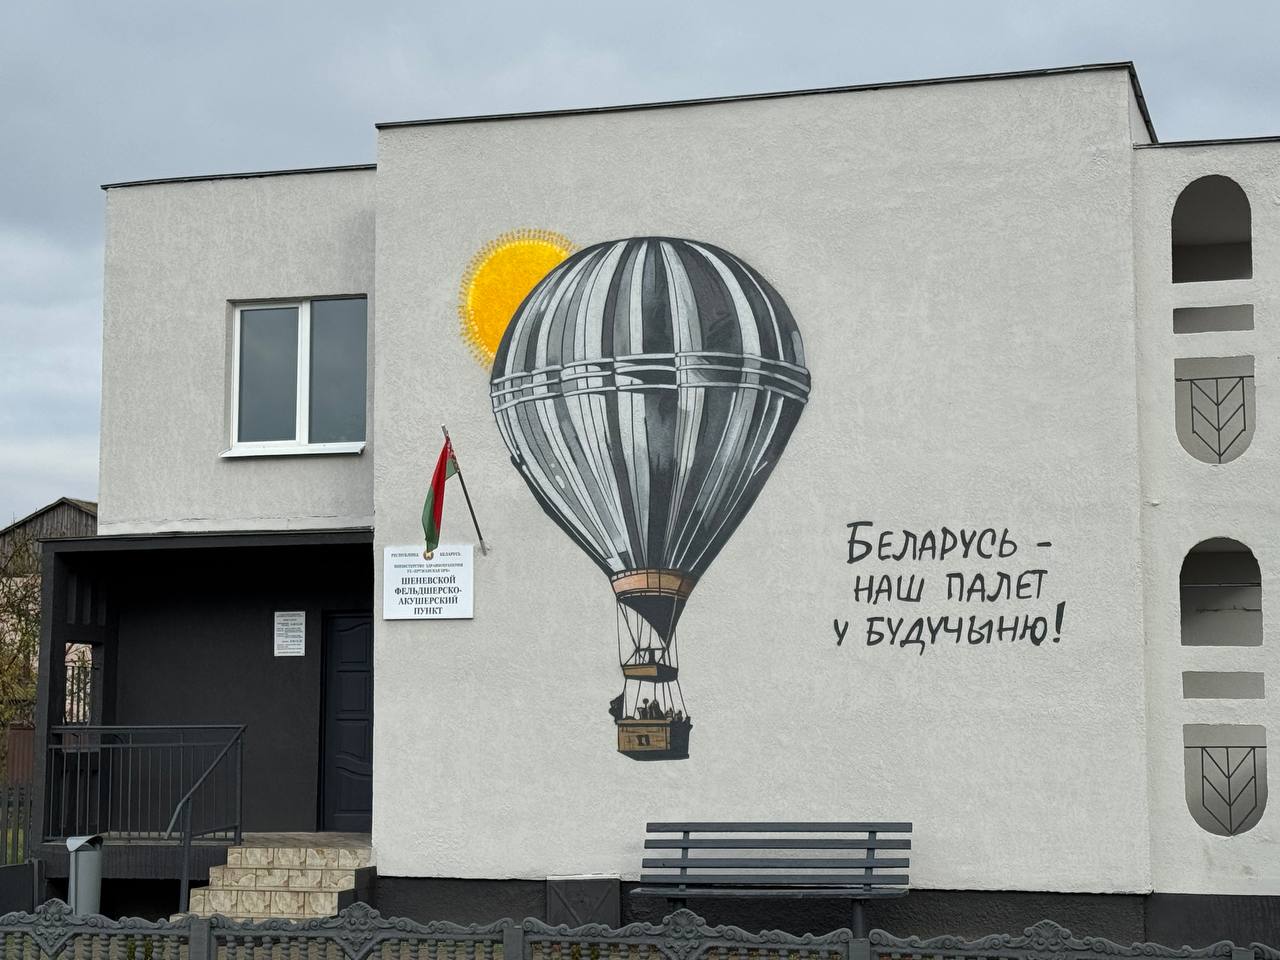 РЕСПУБЛИКА БЕЛАРУСЬ
МИНИСТЕРСТВО ЗДРАВООХРАНЕНИЯ
УЗ «ПРУЖАНСКАЯ ЦРБ»
ШЕНЕВСКОЙ
ФЕЛЬДШЕРСКО-
АКУШЕРСКИЙ
ПУНКТ
БЕЛАРУСЬ -
НАШ ПАЛЕТ
У БУДУЧЫНЮ!